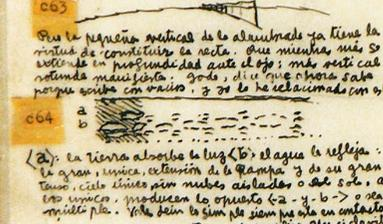 c63
Pero la pequeña vertical de lo alambrado ya tiene la
virtud de constituir la recta. Que mientras más se
extiende en profundidad ante el ojo: más vertical
rotunda manifiesta: Godo, dice que ahora sabe
porque escribe con vacíos, y yo lo he relacionado con es
c64
a
b
<a>: la tierra absorbe la luz <b> el agua la refleja:
la gran, unica, extensión de la Pampa y de su gran
cielo sin nubes aisladas o el sol, a
unicos, producen lo opuesto <-a-y-b-> o
multiple. simple siempre en contacto